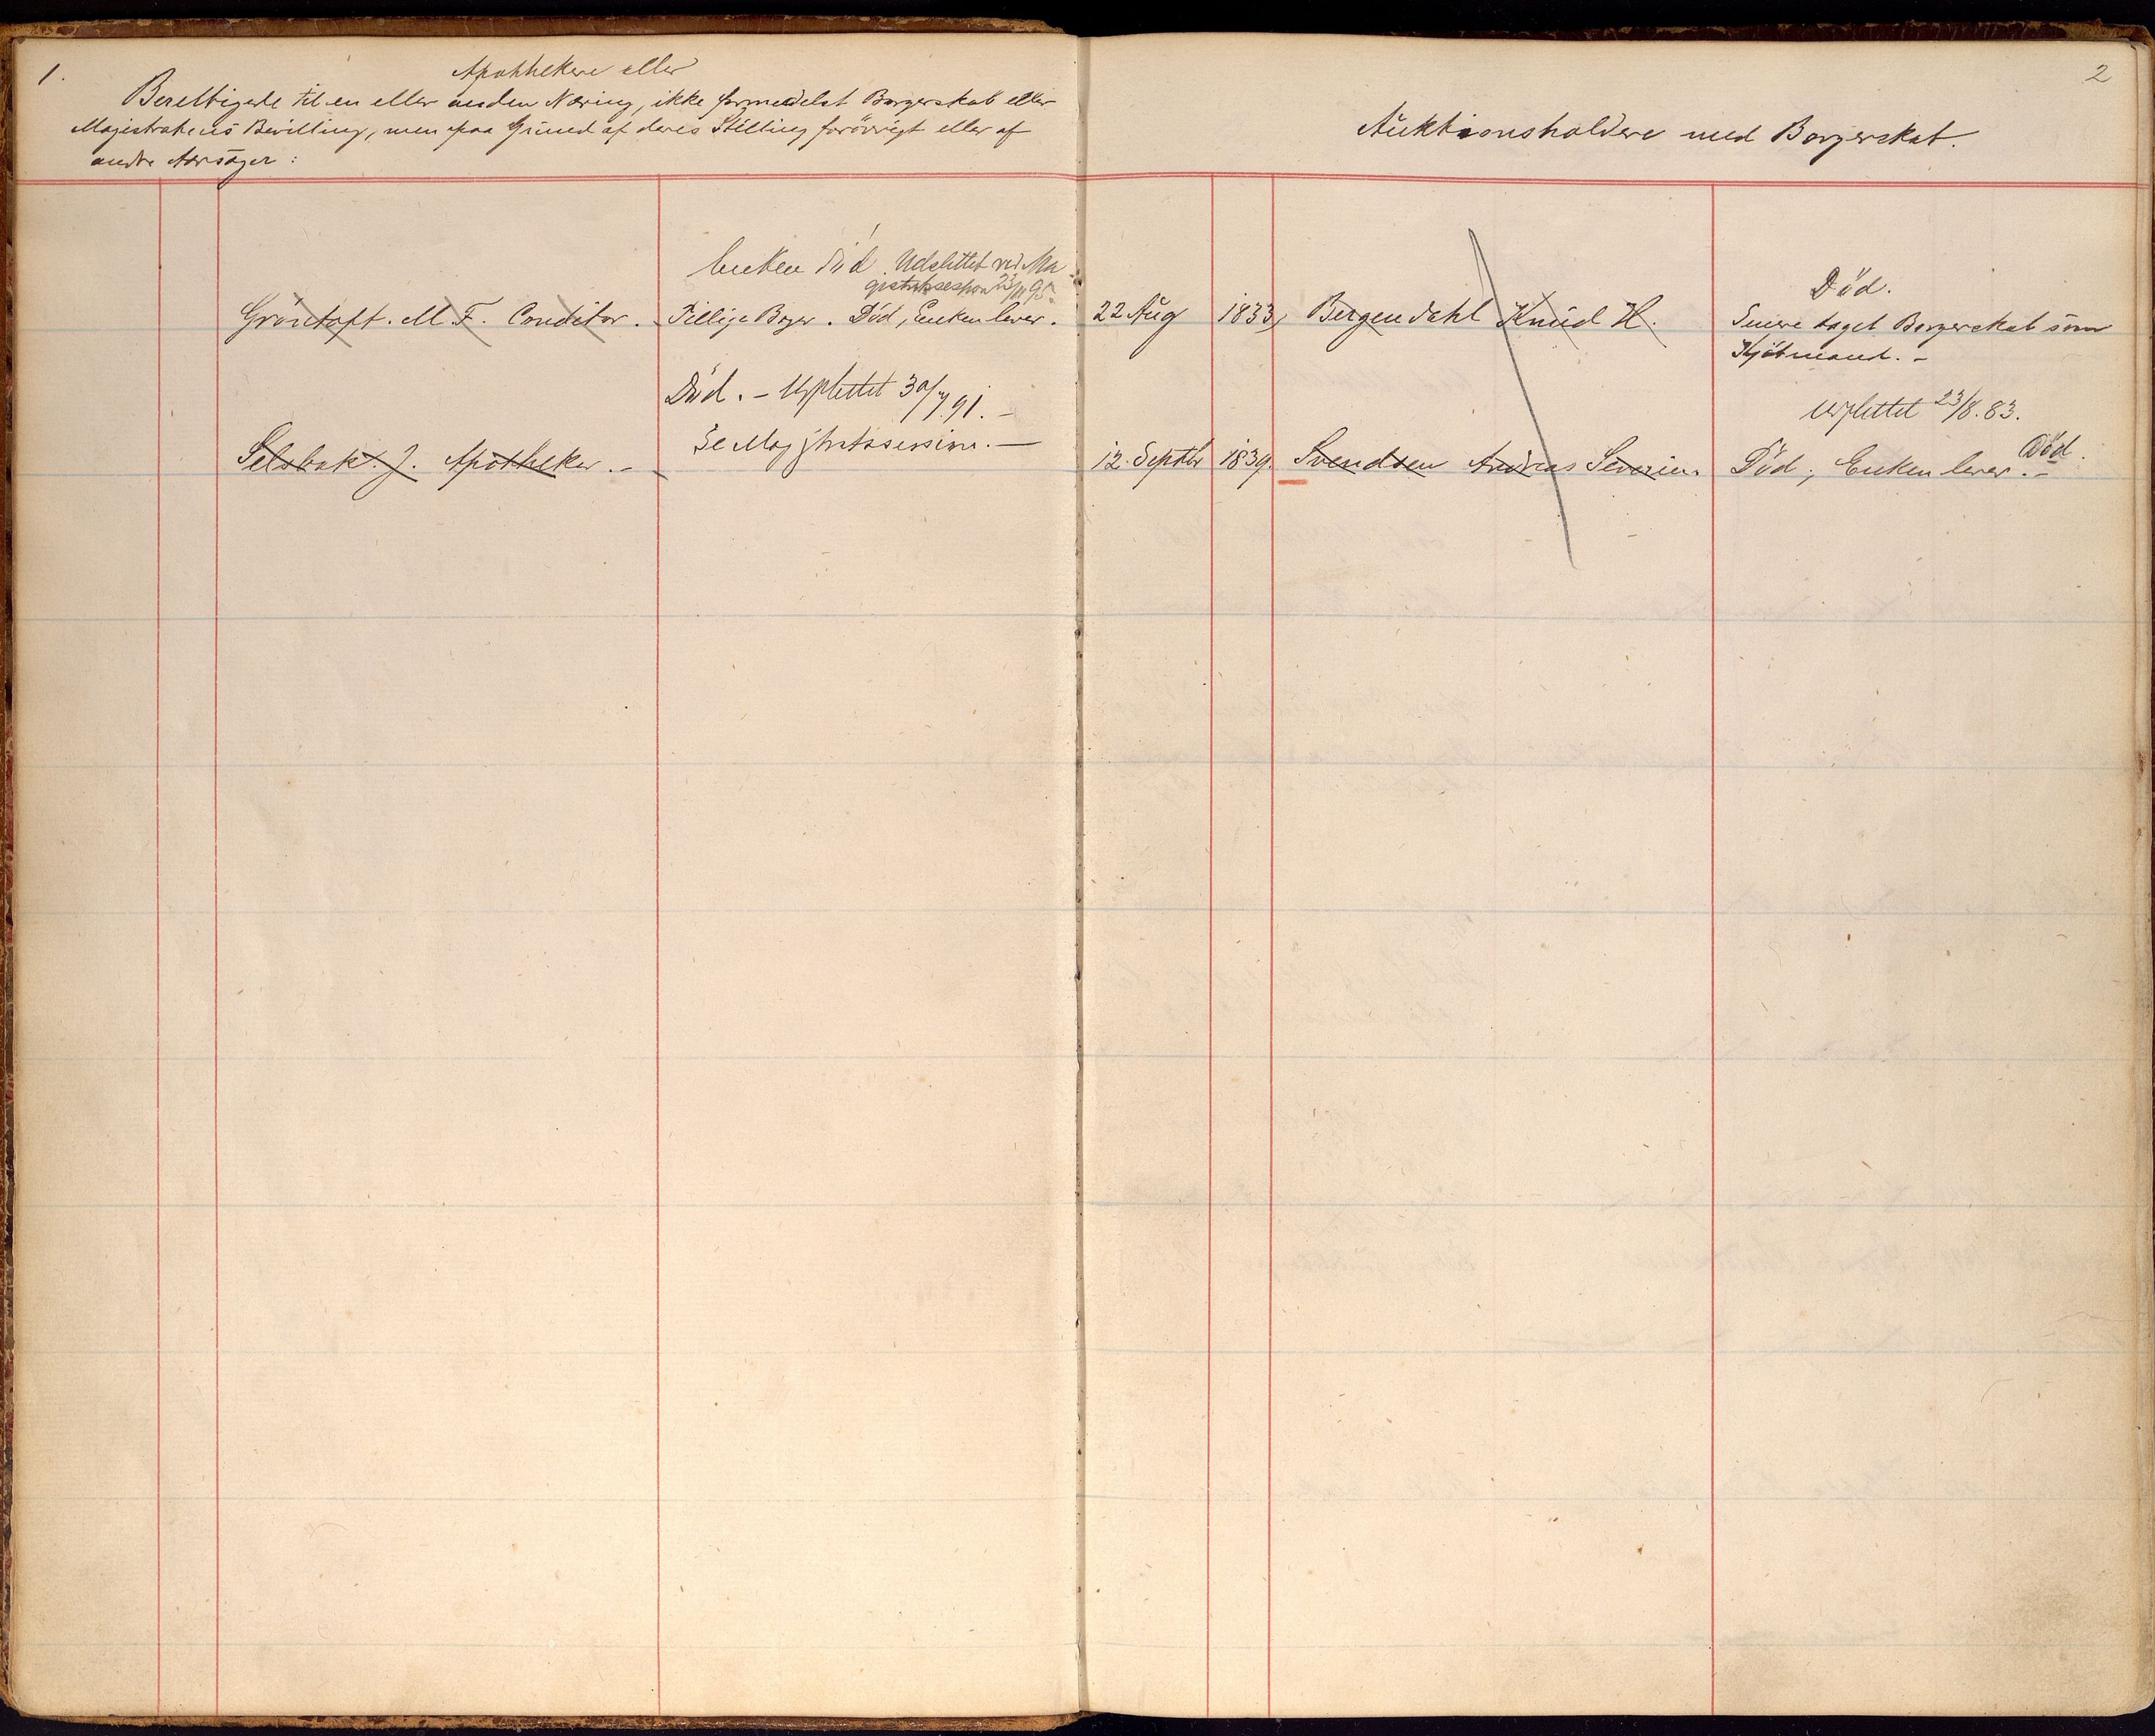 1.
Apothekere eller
Berettigede til en eller anden Næring, ikke formedelst Borgerskab eller
Magistratens Bevilling, men paa Grund af deres Stilling forövrigt eller af
andre Aarsager:
Enken död. Udslettet ved Ma-
gistratssession 23/11 95.
Gröntoft. M. F. Conditor. Tillige Bager. Död, Enken lever.
Död. - Udslettet 30/7.91. -
Se Magistratssession. -
Selsbak. J. Apotheker. -
2
Auktionsholdere med Borgerskab.
Död.
22 Aug 1833, Bergendahl Knud H. Senere taget Borgerskab som
Kjöbmand. -
Udslettet 23/8.83.
Död.
12. Septbr 1839. Svendsen Andreas Severin. Död, Enken lever. -